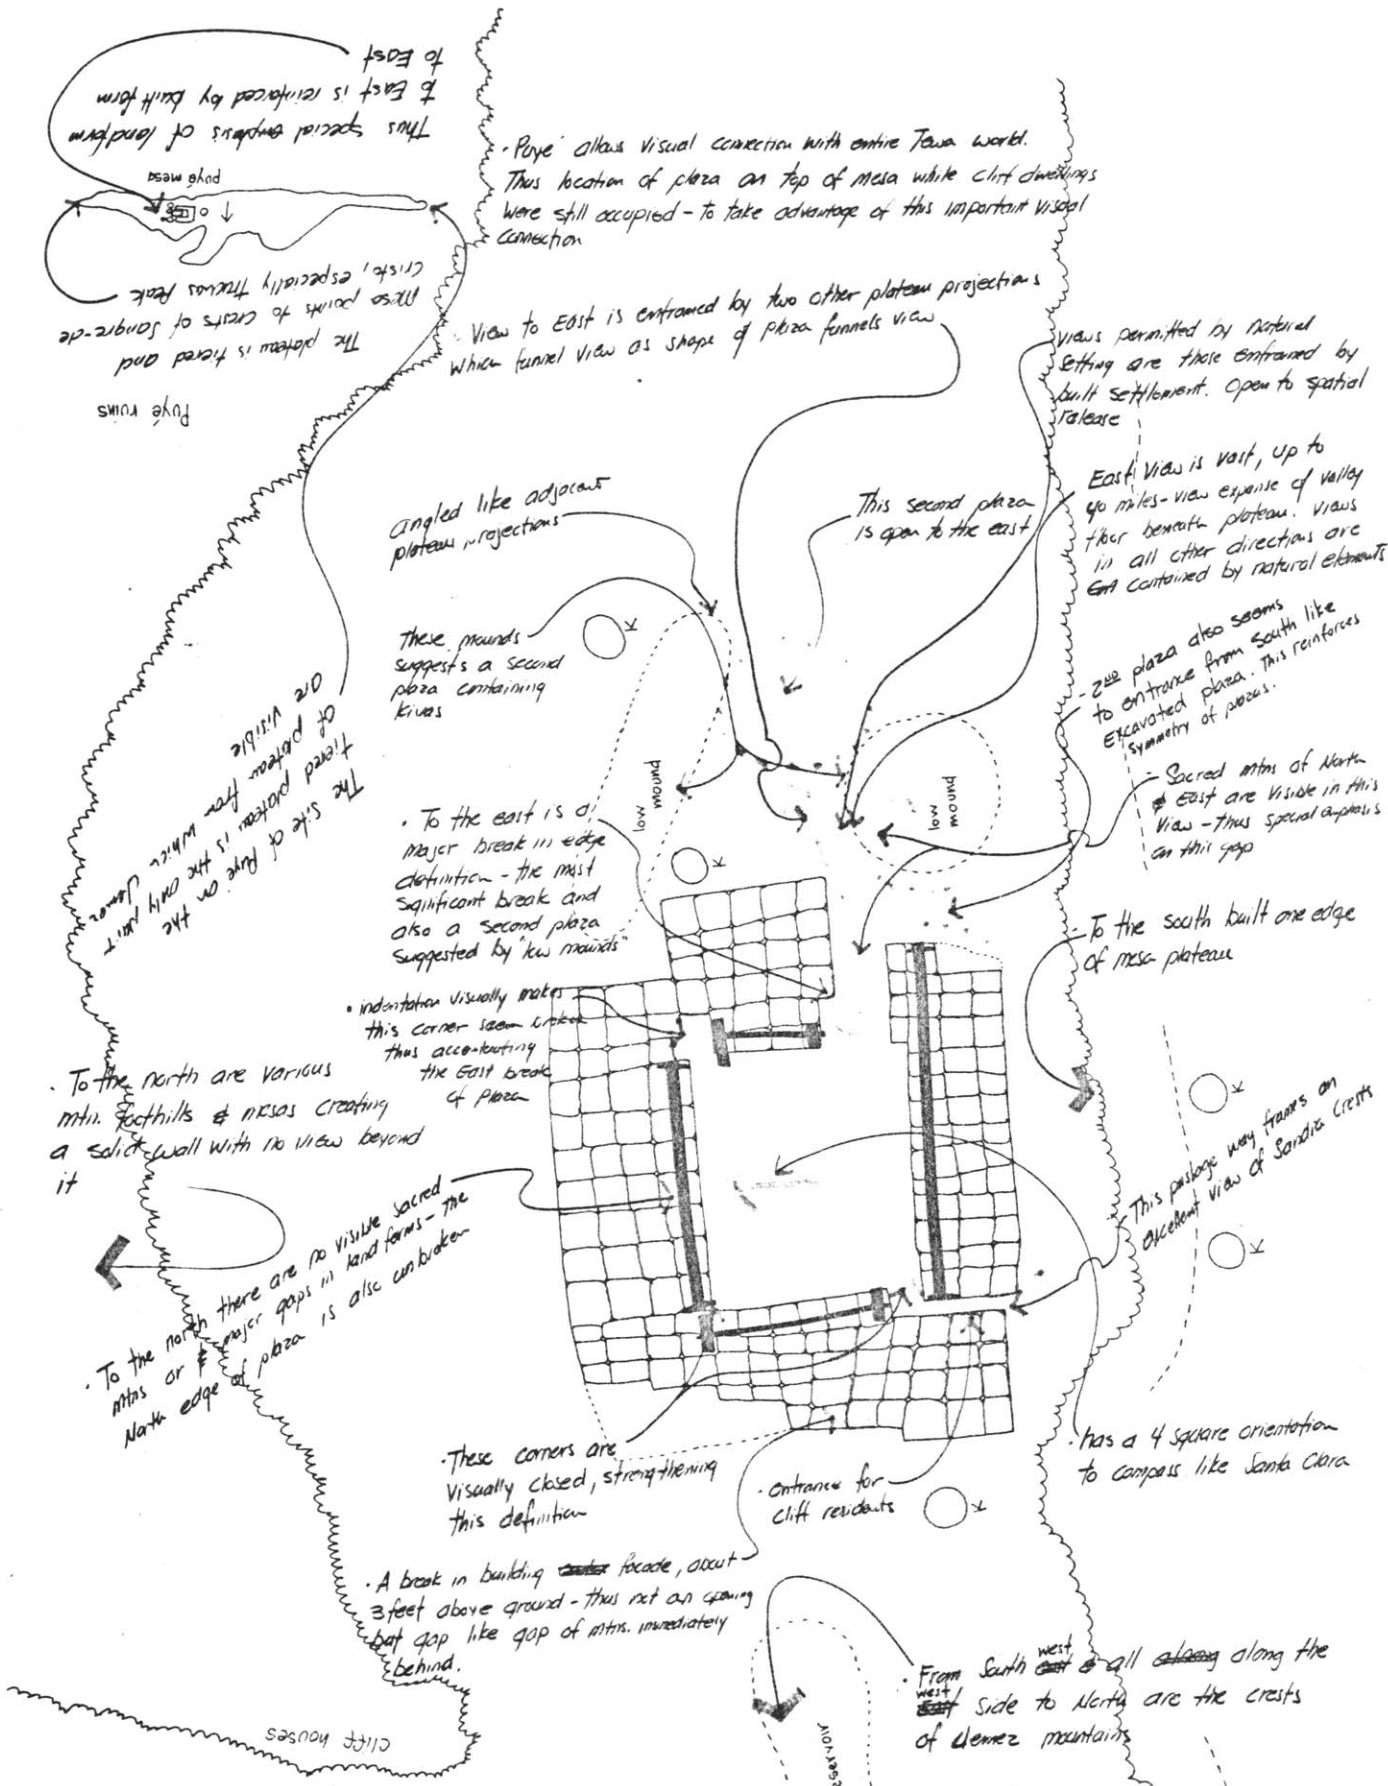 Thus special emphasis of landform
to East is reinforced by built form
to East
puyé mesa
The plateau is tiered and
Mesa points to crests of Sangre-de
Cristo, especially Truchas Peak
Puyé ruins
· Puyé allows visual connection with entire Tewa world.
Thus location of plaza on top of mesa while cliff dwellings
were still occupied - to take advantage of this important visual
connection
· View to East is enframed by two other plateau projections
which funnel view as shape of plaza funnels view
views permitted by natural
setting are those enframed by
built settlement. Open to spatial
release
East View is vast, up to
40 miles - view expanse of valley
floor beneath plateau. Views
in all other directions are
contained by natural elements
angled like adjacent
plateau projections
This second plaza
is open to the east
These mounds
suggests a second
plaza containing
kivas
K
- 2ND plaza also seems
to entrance from South like
Excavated plaza. This reinforces
symmetry of plazas.
The site of Puye on the
tiered plateau is the only part
of plateau from which Jemez
are visible
low
mound
low
mound
- Sacred mtns of North
& East are visible in this
View - thus special emphasis
on this gap
· To the east is a
major break in edge
definition - the most
significant break and
also a second plaza
suggested by "low mounds"
K
· To the south built one edge
of mesa plateau
· indentation visually makes
this corner seem broken
thus accentuating
the East break
of plaza
· To the north are various
mtn. foothills & mesas creating
a solid wall with no view beyond
it
K
· This passage way frames an
excellent view of Sandia Crests
K
· To the north there are no visible sacred
mtns or major gaps in land forms - the
North edge of plaza is also unbroken
· has a 4 square orientation
to compass like Santa Clara
· These corners are
visually closed, strengthening
this definition
· entrance for
cliff residents
K
· A break in building facade, about
3 feet above ground - thus not an opening
but gap like gap of mtns. immediately
behind.
· From South west all along the
west side to North are the crests
of Jemez mountains
cliff houses